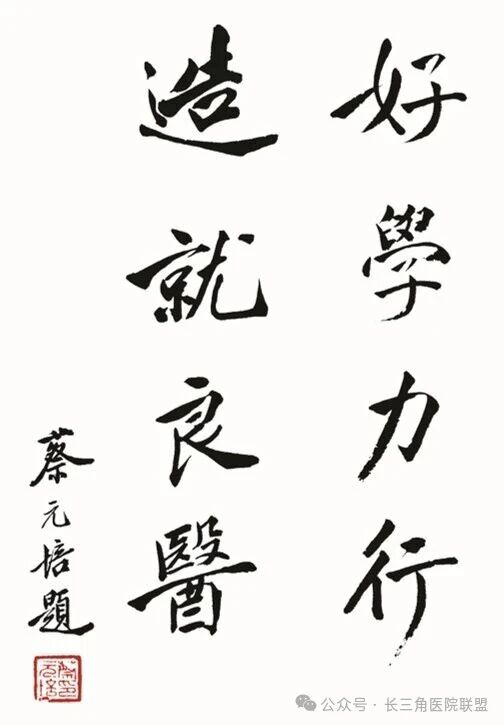 好學力行
造就良醫
蔡元培題
公众号·长三角医院联盟